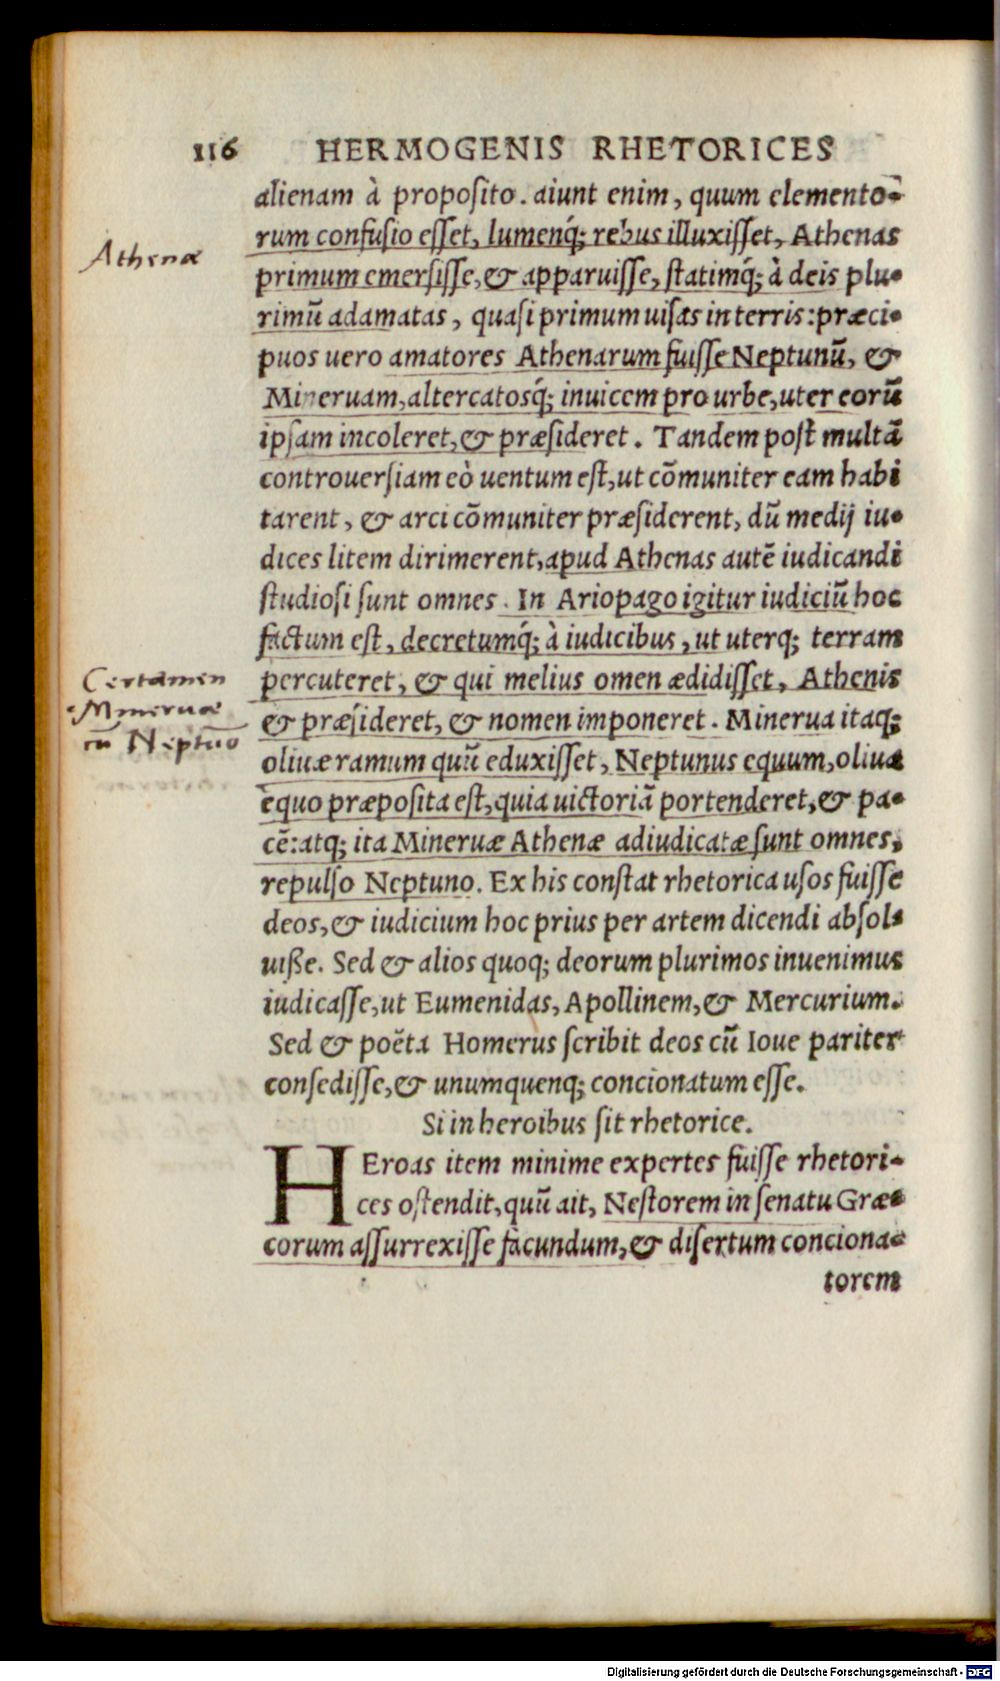 116 HERMOGENIS RHETORICES
alienam à proposito. aiunt enim, quum elemento-
rum confusio esset, lumenq́; rebus illuxisset, Athenas
Athenæ
primum emersisse, & apparuisse, statimq́; à deis plu-
rimũ adamatas, quasi primum uisas in terris: præci-
puos uero amatores Athenarum fuisse Neptunũ, &
Mineruam, altercatosq́; inuicem pro urbe, uter eorũ
ipsam incoleret, & præsideret. Tandem post multã
controuersiam eò uentum est, ut cõmuniter eam habi
tarent, & arci cõmuniter præsiderent, dũ medij iu-
dices litem dirimerent, apud Athenas autẽ iudicandi
studiosi sunt omnes. In Ariopago igitur iudiciũ hoc
factum est, decretumq́; à iudicibus, ut uterq; terram
Certamen
Mineruæ
cũ Neptũo
percuteret, & qui melius omen ædidisset, Athenis
& præsideret, & nomen imponeret. Minerua itaq;
oliuæ ramum quũ eduxisset, Neptunus equum, oliua
equo præposita est, quia uictoriã portenderet, & pa-
cẽ: atq; ita Mineruæ Athenæ adiudicatæ sunt omnes,
repulso Neptuno. Ex his constat rhetorica usos fuisse
deos, & iudicium hoc prius per artem dicendi absol-
uiße. Sed & alios quoq; deorum plurimos inuenimus
iudicasse, ut Eumenidas, Apollinem, & Mercurium.
Sed & poẽta Homerus scribit deos cũ Ioue pariter
consedisse, & unumquenq; concionatum esse.
Si in heroibus sit rhetorice.
HEroas item minime expertes fuisse rhetori-
ces ostendit, quũ ait, Nestorem in senatu Græ-
corum assurrexisse facundum, & disertum conciona-
torem
Digitalisierung gefördert durch die Deutsche Forschungsgemeinschaft - DFG